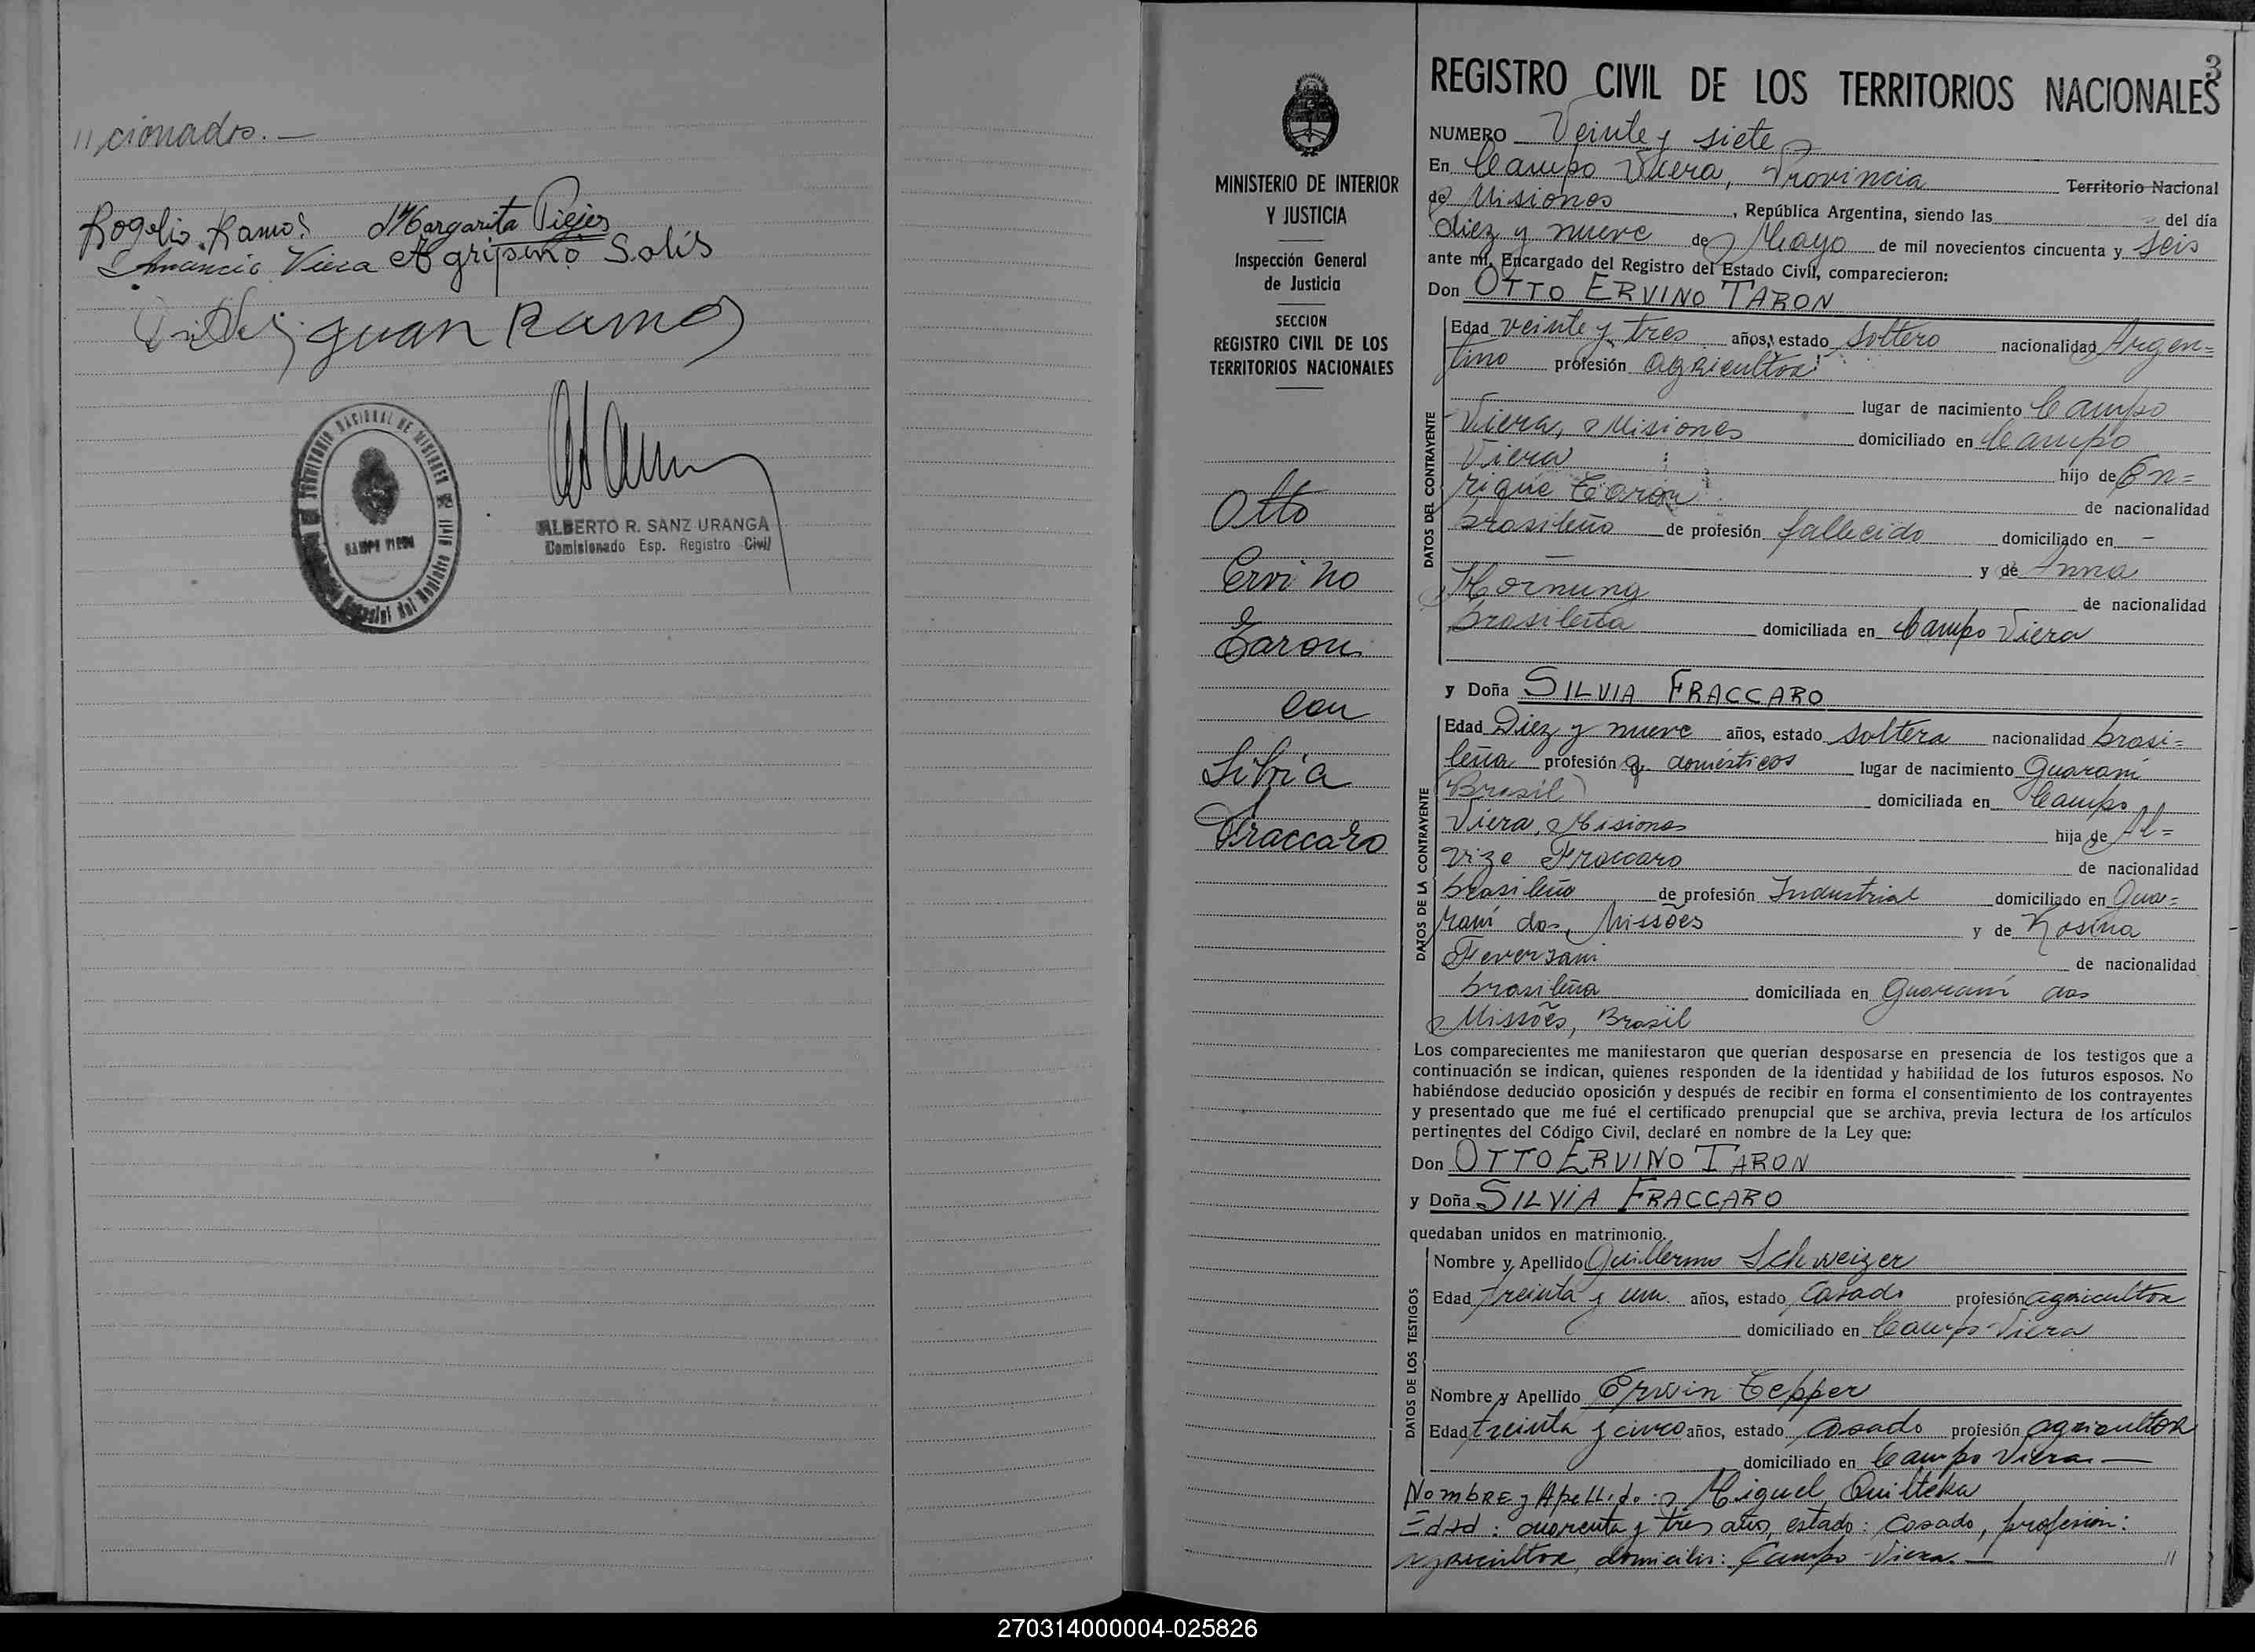 //cionados.—
Rogelio Ramos Margarita Piejes
Amancio Viera Agripino Solis
Juan Ramos
CAMPO VIERA
ALBERTO R. SANZ URANGA
Comisionado Esp. Registro Civil
3
MINISTERIO DE INTERIOR
Y JUSTICIA
Inspección General
de Justicia
SECCION
REGISTRO CIVIL DE LOS
TERRITORIOS NACIONALES
Otto
Ervino
Taron
con
Silvia
Fraccaro
REGISTRO CIVIL DE LOS TERRITORIOS NACIONALES
NUMERO Veinte y siete
En Campo Viera, Provincia Territorio Nacional
de Misiones, República Argentina, siendo las del día
diez y nueve de Mayo de mil novecientos cincuenta y seis
ante mí, Encargado del Registro del Estado Civil, comparecieron:
Don OTTO ERVINO TARON
DATOS DEL CONTRAYENTE
Edad veinte y tres años, estado soltero nacionalidad Argen=
tino profesión agricultor
lugar de nacimiento Campo
Viera, Misiones domiciliado en Campo
Viera hijo de En=
rique Taron de nacionalidad
brasileño de profesión fallecido domiciliado en —
— y de Anna
Hornung de nacionalidad
brasileña domiciliada en Campo Viera
y Doña SILVIA FRACCARO
DATOS DE LA CONTRAYENTE
Edad Diez y nueve años, estado soltera nacionalidad brasi=
leña profesión q. domésticos lugar de nacimiento Guaraní
(Brasil) domiciliada en Campo
Viera, Misiones hija de Al=
vize Fraccaro de nacionalidad
brasileña de profesión Industrial domiciliado en Gua=
raní das Missões y de Rosina
Feversani de nacionalidad
brasileña domiciliada en Guaraní das
Missões, Brasil
Los comparecientes me manifestaron que querían desposarse en presencia de los testigos que a
continuación se indican, quienes responden de la identidad y habilidad de los futuros esposos. No
habiéndose deducido oposición y después de recibir en forma el consentimiento de los contrayentes
y presentado que me fué el certificado prenupcial que se archiva, previa lectura de los artículos
pertinentes del Código Civil, declaré en nombre de la Ley que:
Don OTTO ERVINO TARON
y Doña SILVIA FRACCARO
quedaban unidos en matrimonio.
DATOS DE LOS TESTIGOS
Nombre y Apellido Guillermo Schweizer
Edad treinta y un años, estado Casado profesión agricultor
domiciliado en Campo Viera
Nombre y Apellido Erwin Tepper
Edad treinta y cinco años, estado casado profesión agricultor
domiciliado en Campo Viera.—
Nombre y Apellido: Miguel Quilteka
Edad: cuarenta y tres años, estado: casado, profesión:
agricultor, domicilio: Campo Viera.— //
270314000004-025826